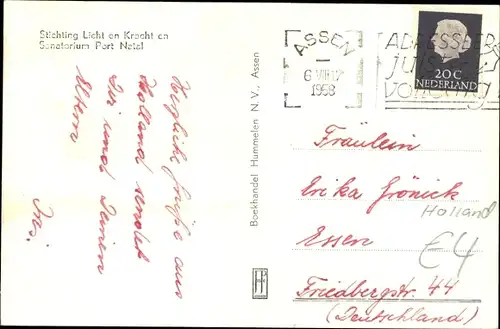 Stichting Licht en Kracht en
Sanatorium Port Natal
Herzliche Grüße aus
Holland sendet
Dir und Deinen
Eltern
Iris.
Boekhandel Hummelen N.V., Assen
ASSEN
6 VIII 17
1958
ADRESSEER
JUIST
VOLLEDIG
20 C
NEDERLAND
Fräulein
Erika Grönick
Holland
Essen
€4
Friedbergstr. 44
(Deutschland)